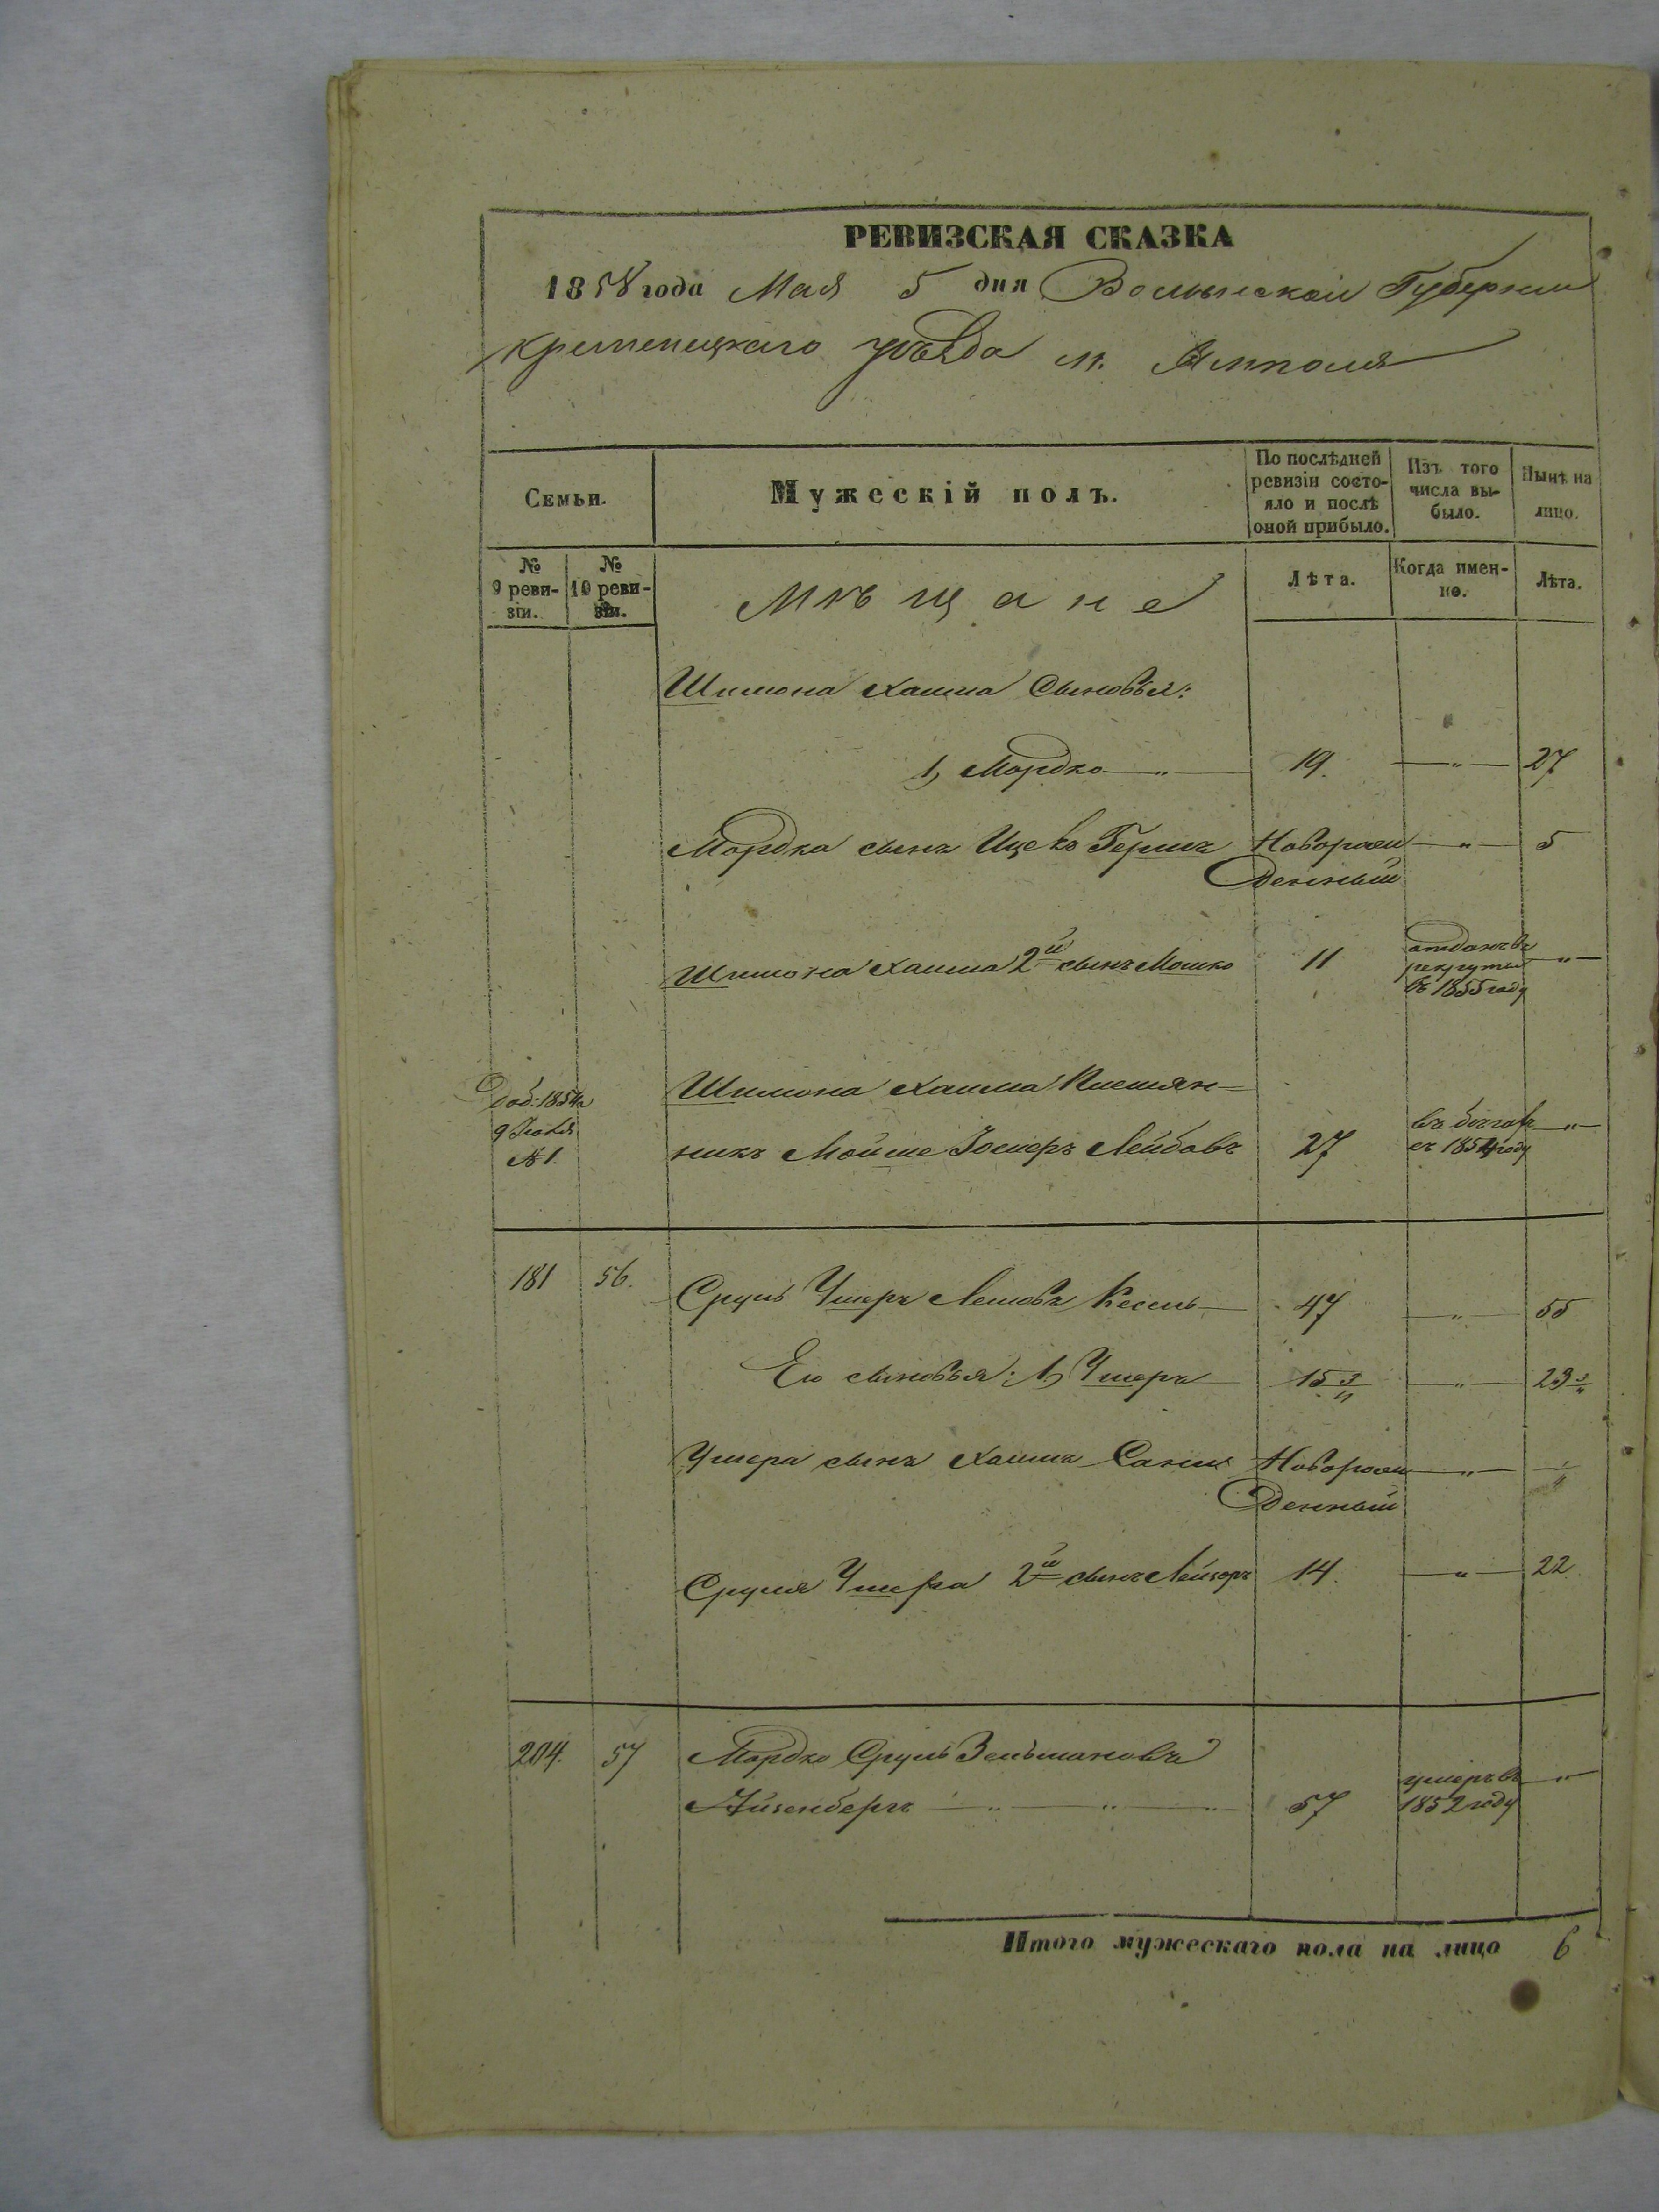 РЕВИЗСКАЯ СКАЗКА
1858 года Мая 5 дня Волынской Губернии
Кременецкаго уѣзда м. Ямполя
Семьи.
Мужескій полъ.
По послѣдней
ревизіи состо-
яло и послѣ
оной прибыло.
Изъ того
числа вы-
было.
Нынѣ на
лицо.
№
9 реви-
зіи.
№
10 реви-
зіи.
Мѣщане
Лѣта.
Когда имен-
но.
Лѣта.
Шимона Хаима Сыновья:
1, Мордко — " — 19. — " — 27
Мордка сынъ Ицекъ Гершъ Новорож — " — 5
денный
Шимона Хаима 2й сынъ Мошко 11
отданъ въ
рекруты — " —
въ 1855 году
Доб: 1854
9
№ 1.
Шимона Хаима Племян-
никъ Мойше Іосперъ Лейбовъ 27
въ бѣгахъ — " —
съ 1854 году
181 56. Сруль Ушеръ Лейбовъ Кесель — 47 — " — 55
Его сыновья: 1, Ушеръ — 15 — " — 23
Ушера сынъ Хаимъ Новорож — " —
денный
Сруля Ушера 2й сынъ Лейзоръ 14. — " — 22
204. 57 Мордко Сруль Зельмановъ
Айзенбергъ — " — " — " 57
умеръ въ — " —
1852 году
Итого мужескаго пола на лицо 6